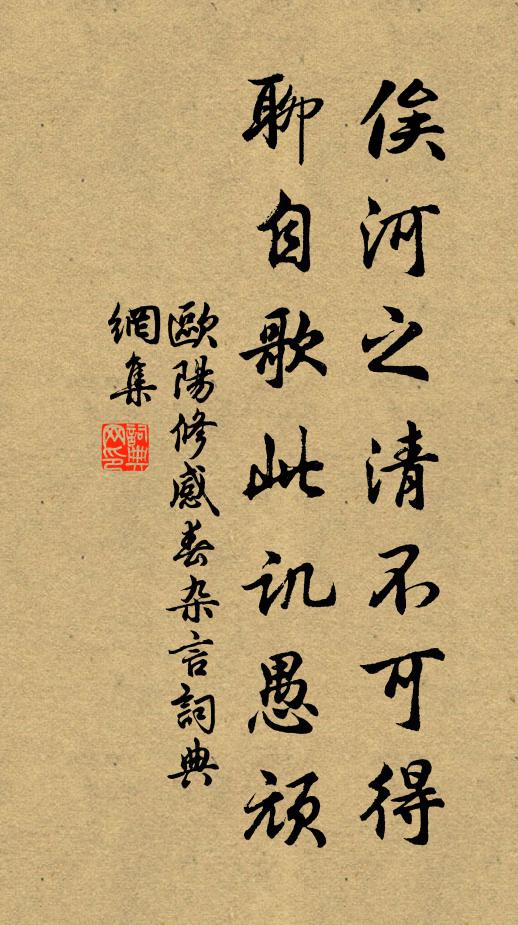 俟河之清不可得
聊自歌此讥愚顽
歐陽修感春杂言詞典
網集
詞典网印